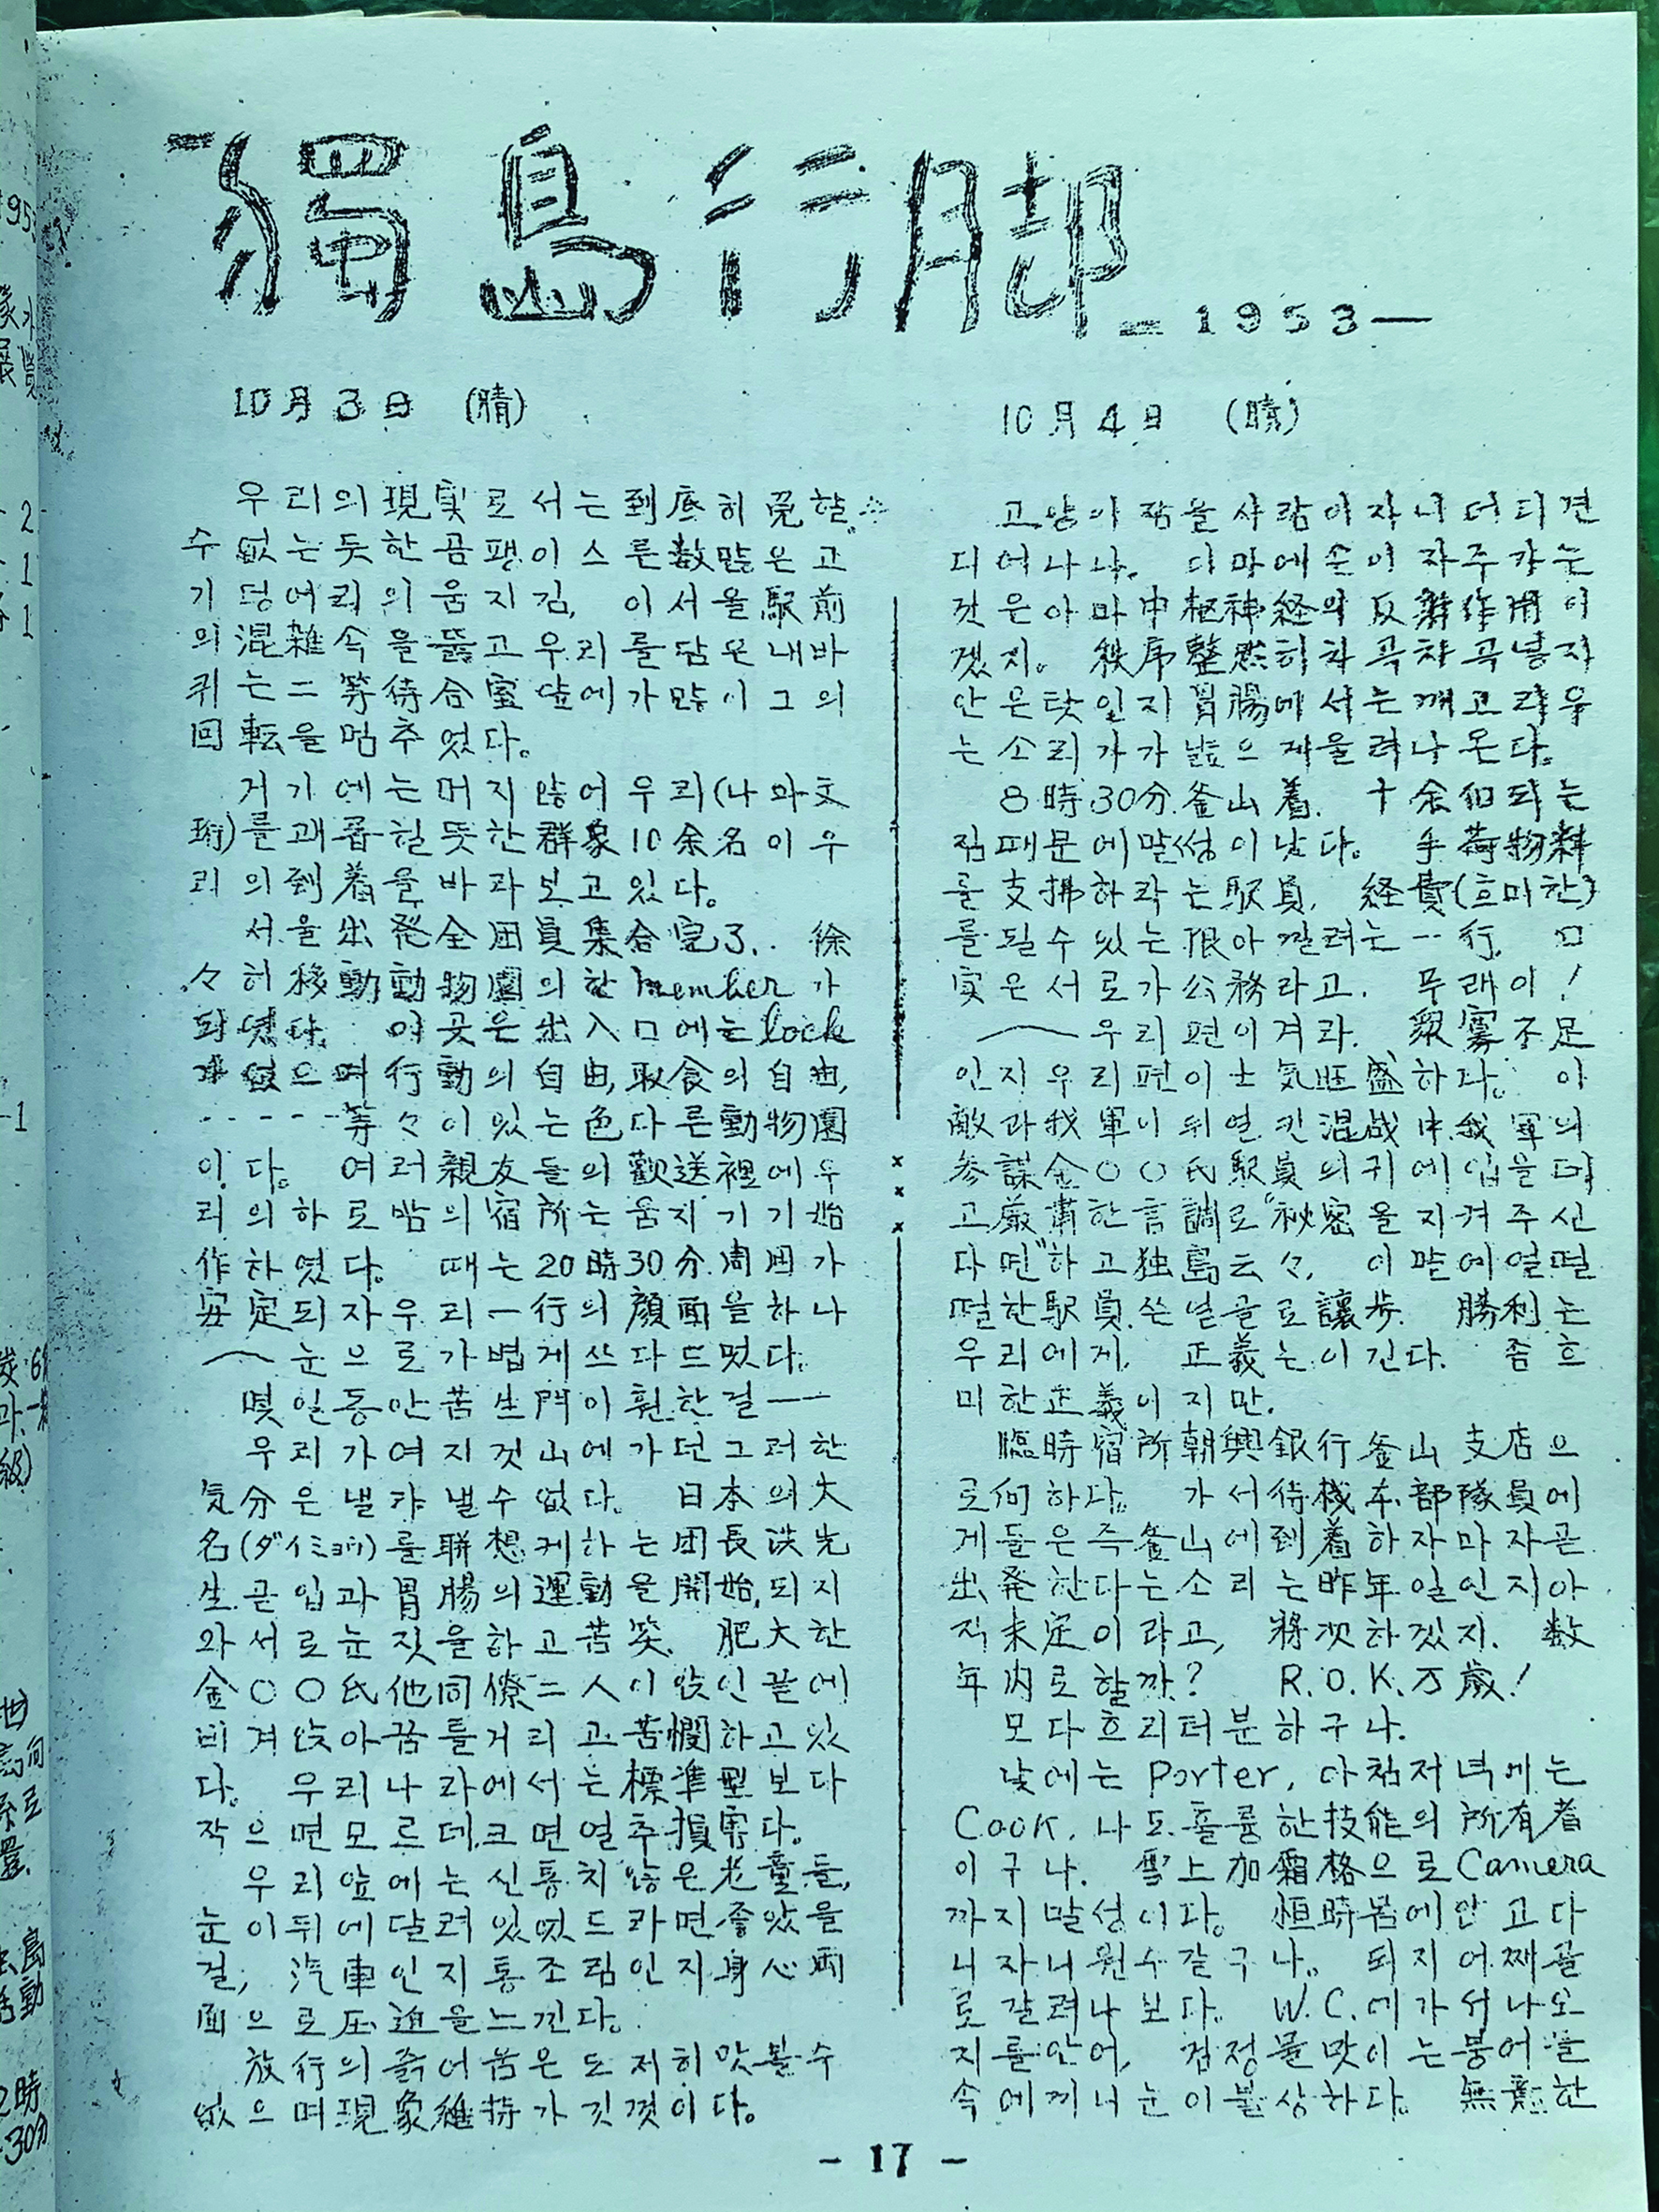 獨島行脚 —1953—
10月3日 (晴)
우리의現実로서는到底히免할
수없는듯한곰팽이스른数많은고
기덩어리의움지김, 이서울駅前
의混雑속을뚫고우리를담은내바
퀴는二等待合室앞에가많이그의
回転을멈추었다。
거기에는머지않어우리(나와文
珩)를괴롭힐듯한群象10余名이우
리의到着을바라보고있다。
서울出発全団員集合完了. 徐
々히移動動物園의한member가
되였다. 이곳은出入口에는lock
가없으며行動의自由,取食의自由,
-----等々이있는色다른動物園
이다。 여러親友들의歡送裡에우
리의하로밤의宿所는움지기기始
作하였다。 때는20時30分.周囲가
安定되자우리一行의顔面을하나
〜눈으로가볍게쓰다드멌다。
몇일동안苦生門이훤한걸——
우리가여지껏山에가던그러한
気分은낼랴낼수없다。 日本의大
名(ダイミョウ)를聯想케하는団長洪先
生.곧입과胃腸의運動을開始,되지
와서로눈짓을하고苦笑. 肥大한
金○○氏他同僚二人이앉인끝에
비겨앉아꿈틀거리고苦悶하고있
다。 우리나라에서는標準型보다
작으면모르데,크면열추損害다。
우리앞에는신통치않은老童들,
눈이뒤에달려있었드라면좋았을
걸, 汽車인지통조림인지身心両
面으로圧迫을느낀다。
放行의즑어움은도저히맛볼수
없으며現象維持가깃껏이다。
10月4日 (晴)
고양이잠을사람이자니어디견
디여나나. 이마에손이자주가는
것은아마中枢神経의反射作用이
겠지。 秩序整然히차곡차곡넣지
안은탓일지胃腸에서는깨고라우
는소리가가끔으제울려나온다。
8時30分.釜山着. 十余個되는
짐때문에말썽이났다。 手荷物料
를支拂하라는駅員, 経費(흐미한)
를될수있는限아낄려는一行, 口
実은서로가公務라고. 무래이!
〜우리편이겨라. 衆寡不足
인지우리편이士気旺盛하다。 이
敵과我軍이뒤열킨混战中.我軍의
参謀金○○氏駅員의귀에입을대
고厳肅한言調로"秘密을지켜주신
다면"하고独島云々, 이말에얼떨
떨한駅員.쓴얼골로讓歩. 勝利는
우리에게. 正義는이긴다. 좀흐
미한正義이지만.
臨時宿所朝興銀行釜山支店으
로向하다。 가서待機本部隊員에
게들은즉釜山에到着하자마자곧
出発한다는소리는昨年일인지아
직未定이라고, 將次하겠지. 数
年內로할까? R.O.K.万歳!
모다흐리터분하구나.
낮에는Porter, 아침저녁에는
Cook.나도훌륭한技能의所有者
이구나. 雪上加霜格으로Camera
까지말성이다。 恒時몸에안고다
니자니원수같구나。 되지어째골
로갈려나보다。 W.C.에가서나오
지를안어, 검정물맛이는붕어물
속에끼너눈이불상하다。 無意한
- 17 -